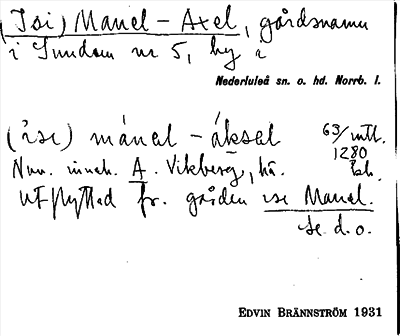 (Isi) Manel - Axel, gårdsnamn
i Sundom nr 5, by i
Nederluleå sn. o. hd. Norrb. l.
(ɩ̀sɩ) mánəl - áksəl 63/mtl.
1280
Nuv. inneh. A. Vikberg, hä.
utflyttad fr. gården isi Manel.
Se d. o.
EDVIN BRÄNNSTRÖM 1931